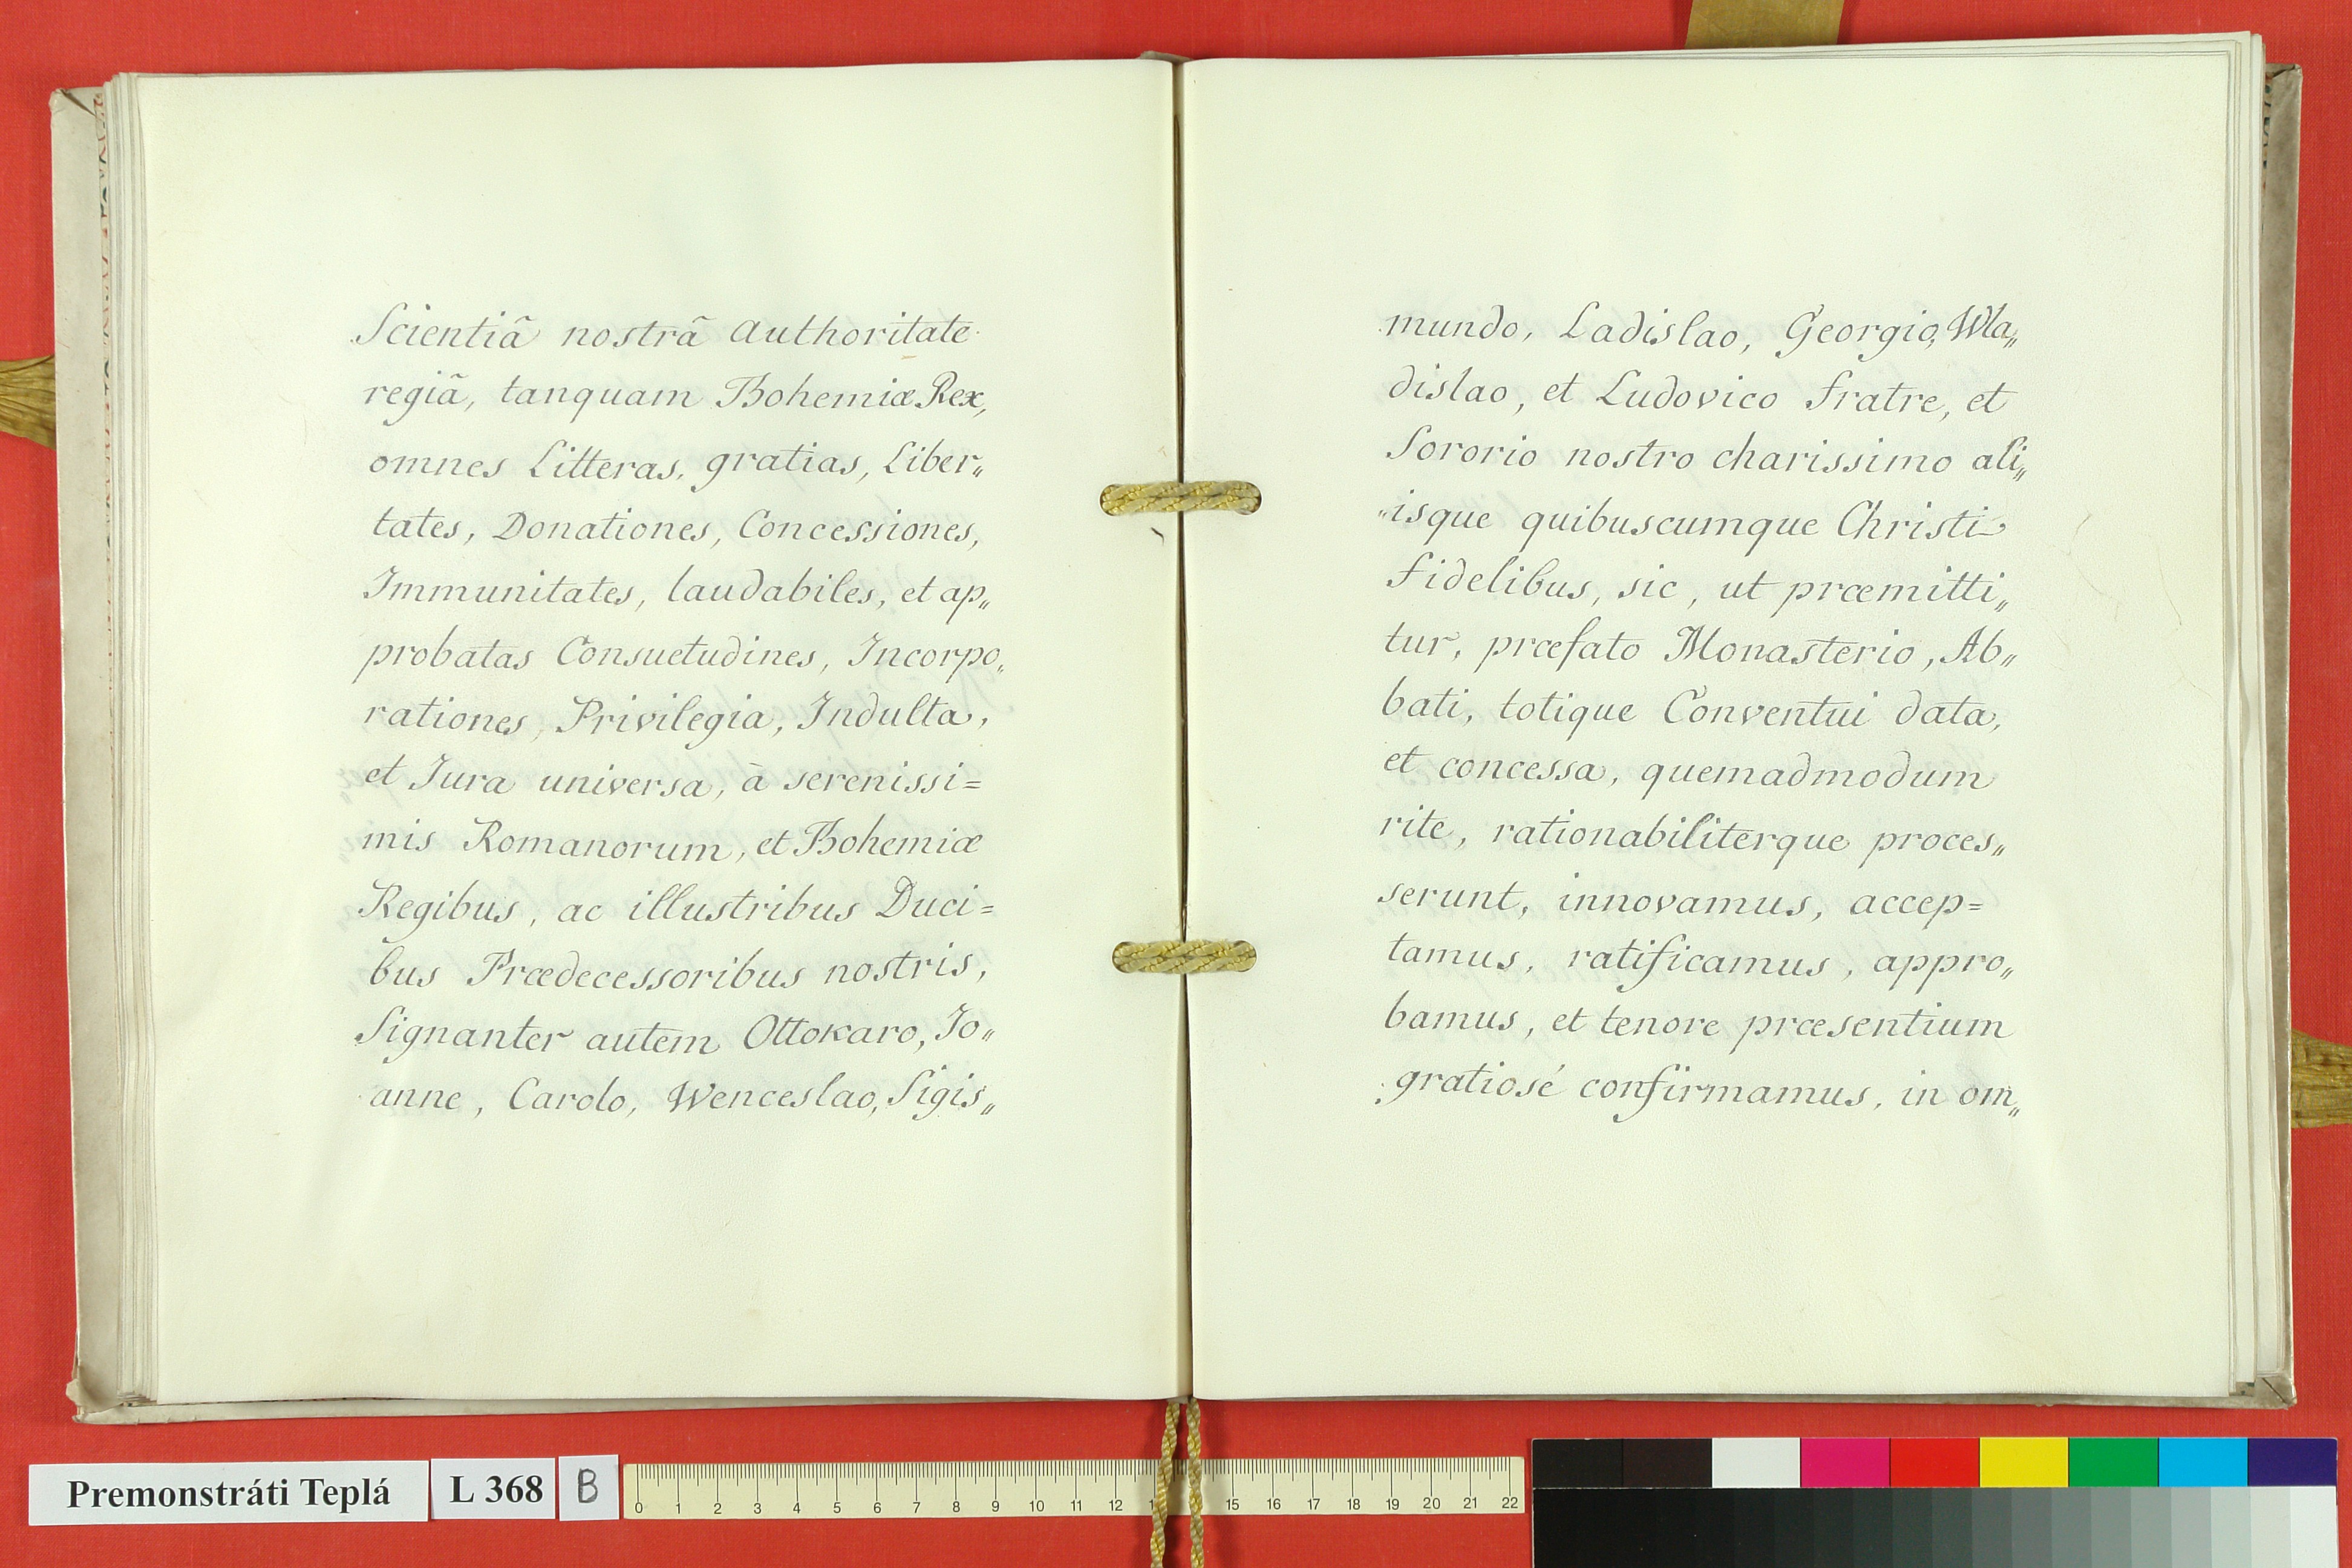 Scientiã nostrã authoritate
regiã, tanquam Bohemiæ Rex,
omnes Litteras, gratias, Liber„
tates, Donationes, Concessiones,
Immunitates, laudabiles, et ap„
probatas Consuetudines, Incorpo„
rationes, Privilegia, Indulta,
et Jura universa, à serenissi=
mis Romanorum, et Bohemiæ
Regibus, ac illustribus Duci=
bus Prædecessoribus nostris,
Signanter autem Ottokaro, Jo„
anne, Carolo, Wenceslao, Sigis„
mundo, Ladislao, Georgio, Wla„
dislao, et Ludovico fratre, et
Sororio nostro charissimo ali„
„isque quibuscumque Christi
fidelibus, sic, ut præmitti„
tur, præfato Monasterio, Ab„
bati, totique Conventui data,
et concessa, quemadmodum
rite, rationabiliterque proces„
serunt, innovamus, accep=
tamus, ratificamus, appro„
bamus, et tenore præsentium
gratiosé confirmamus, in om„
Premonstráti Teplá L 368 B
0 1 2 3 4 5 6 7 8 9 10 11 12 15 16 17 18 19 20 21 22